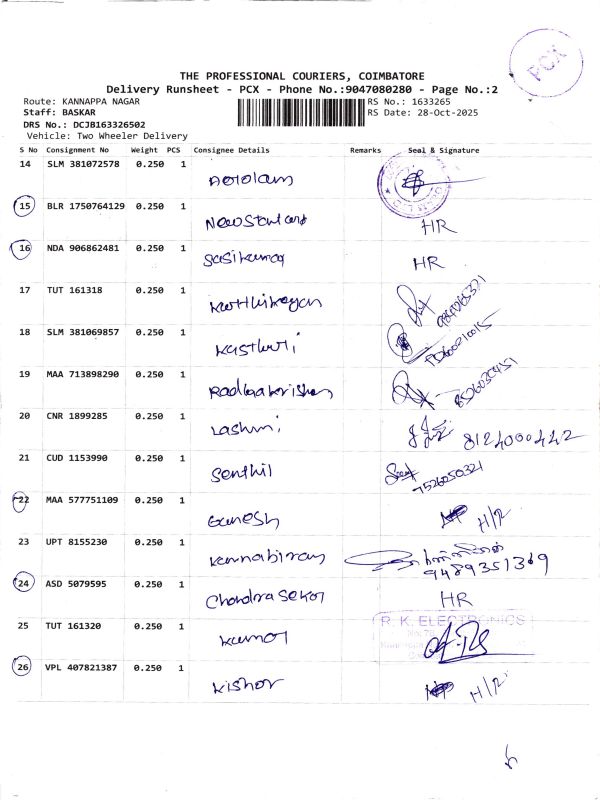 PCX
THE PROFESSIONAL COURIERS, COIMBATORE
Delivery Runsheet - PCX - Phone No.:9047080280 - Page No.:2
Route: KANNAPPA NAGAR
RS No.: 1633265
Staff: BASKAR
RS Date: 28-Oct-2025
DRS No.: DCJB163326502
Vehicle: Two Wheeler Delivery
S No Consignment No Weight PCS Consignee Details Remarks Seal & Signature
14 SLM 381072578 0.250 1
15 BLR 1750764129 0.250 1 HR
16 NDA 906862481 0.250 1 Sasikumar HR
17 TUT 161318 0.250 1 Karthikeyan
18 SLM 381069857 0.250 1 Kasthuri
19 MAA 713898290 0.250 1 Radhakrishan
20 CNR 1899285 0.250 1 Lashmi 8124000442
21 CUD 1153990 0.250 1 Senthil 7526050321
22 MAA 577751109 0.250 1 Ganesh H/R
23 UPT 8155230 0.250 1 Kannabiran 9489351369
24 ASD 5079595 0.250 1 Chandra Sekar HR
25 TUT 161320 0.250 1 Kumar R. K. ELECTRONICS
26 VPL 407821387 0.250 1 Kishor H/R